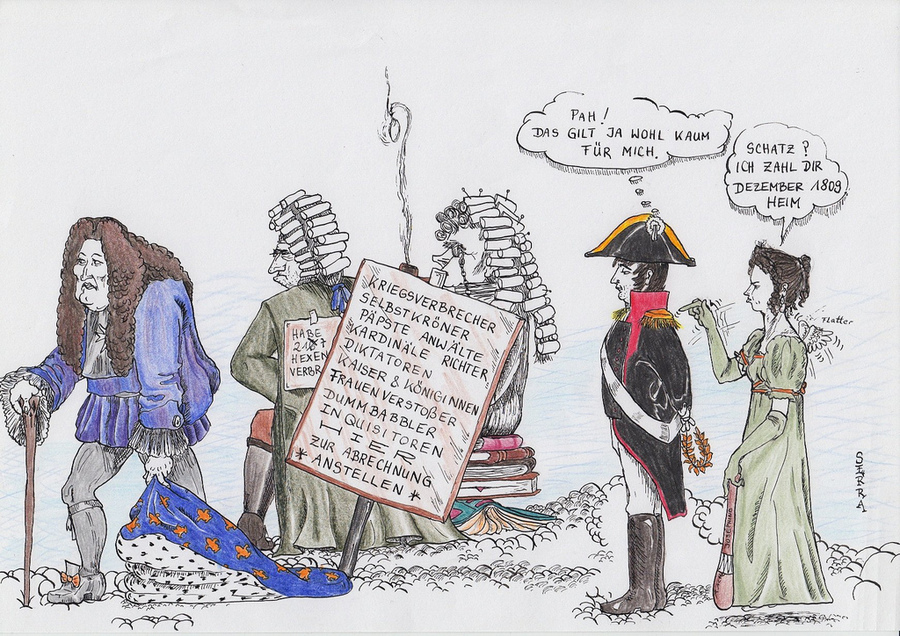 PAH!
DAS GILT JA WOHL KAUM
FÜR MICH.
SCHATZ?
ICH ZAHL DIR
DEZEMBER 1809
HEIM
flatter
HABE
HEXEN
VERBR
KRIEGSVERBRECHER
SELBSTKRÖNER
PÄPSTE ANWÄLTE
KARDINÄLE RICHTER
DIKTATOREN
KAISER & KÖNIGINNEN
FRAUENVERSTOßER
DUMMBABBLER
INQUISITOREN
HIER
ZUR ABRECHNUNG
* ANSTELLEN *
SIRRA